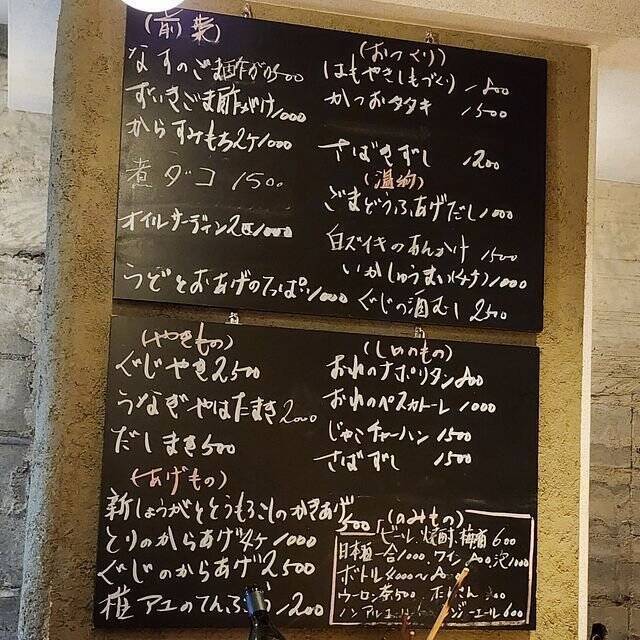 (前菜)
なすのごま酢がけ1500
ずいきごま酢がけ1000
からすみもち2ヶ1000
煮ダコ 1500
オイルサーディン2匹1000
うどとおあげのてっぱい1000
(おつくり)
はもやきしもづくり 1800
かつおタタキ 1500
さばきずし 1200
(温物)
ごまどうふあげだし1000
白ズイキのあんかけ 1500
いかしゅうまい(4ケ)1000
ぐじの酒むし 2500
(やきもの)
ぐじやき2,500
うなぎやはたまき2000
だしまき500
(あげもの)
新しょうがととうもろこしのかきあげ
500
とりのからあげ4ヶ1000
ぐじのからあげ2500
稚アユのてんぷら1200
(しめのもの)
おれのナポリタン800
おれのペスカトーレ 1000
じゃこチャーハン 1500
さばずし 1500
(のみもの)
ビール、焼酎、梅酒 600
日本酒一合1000、ワイン 泡1000
ボトル4000〜
ウーロン茶500、
ノンアルコール500 ジンジーエール600